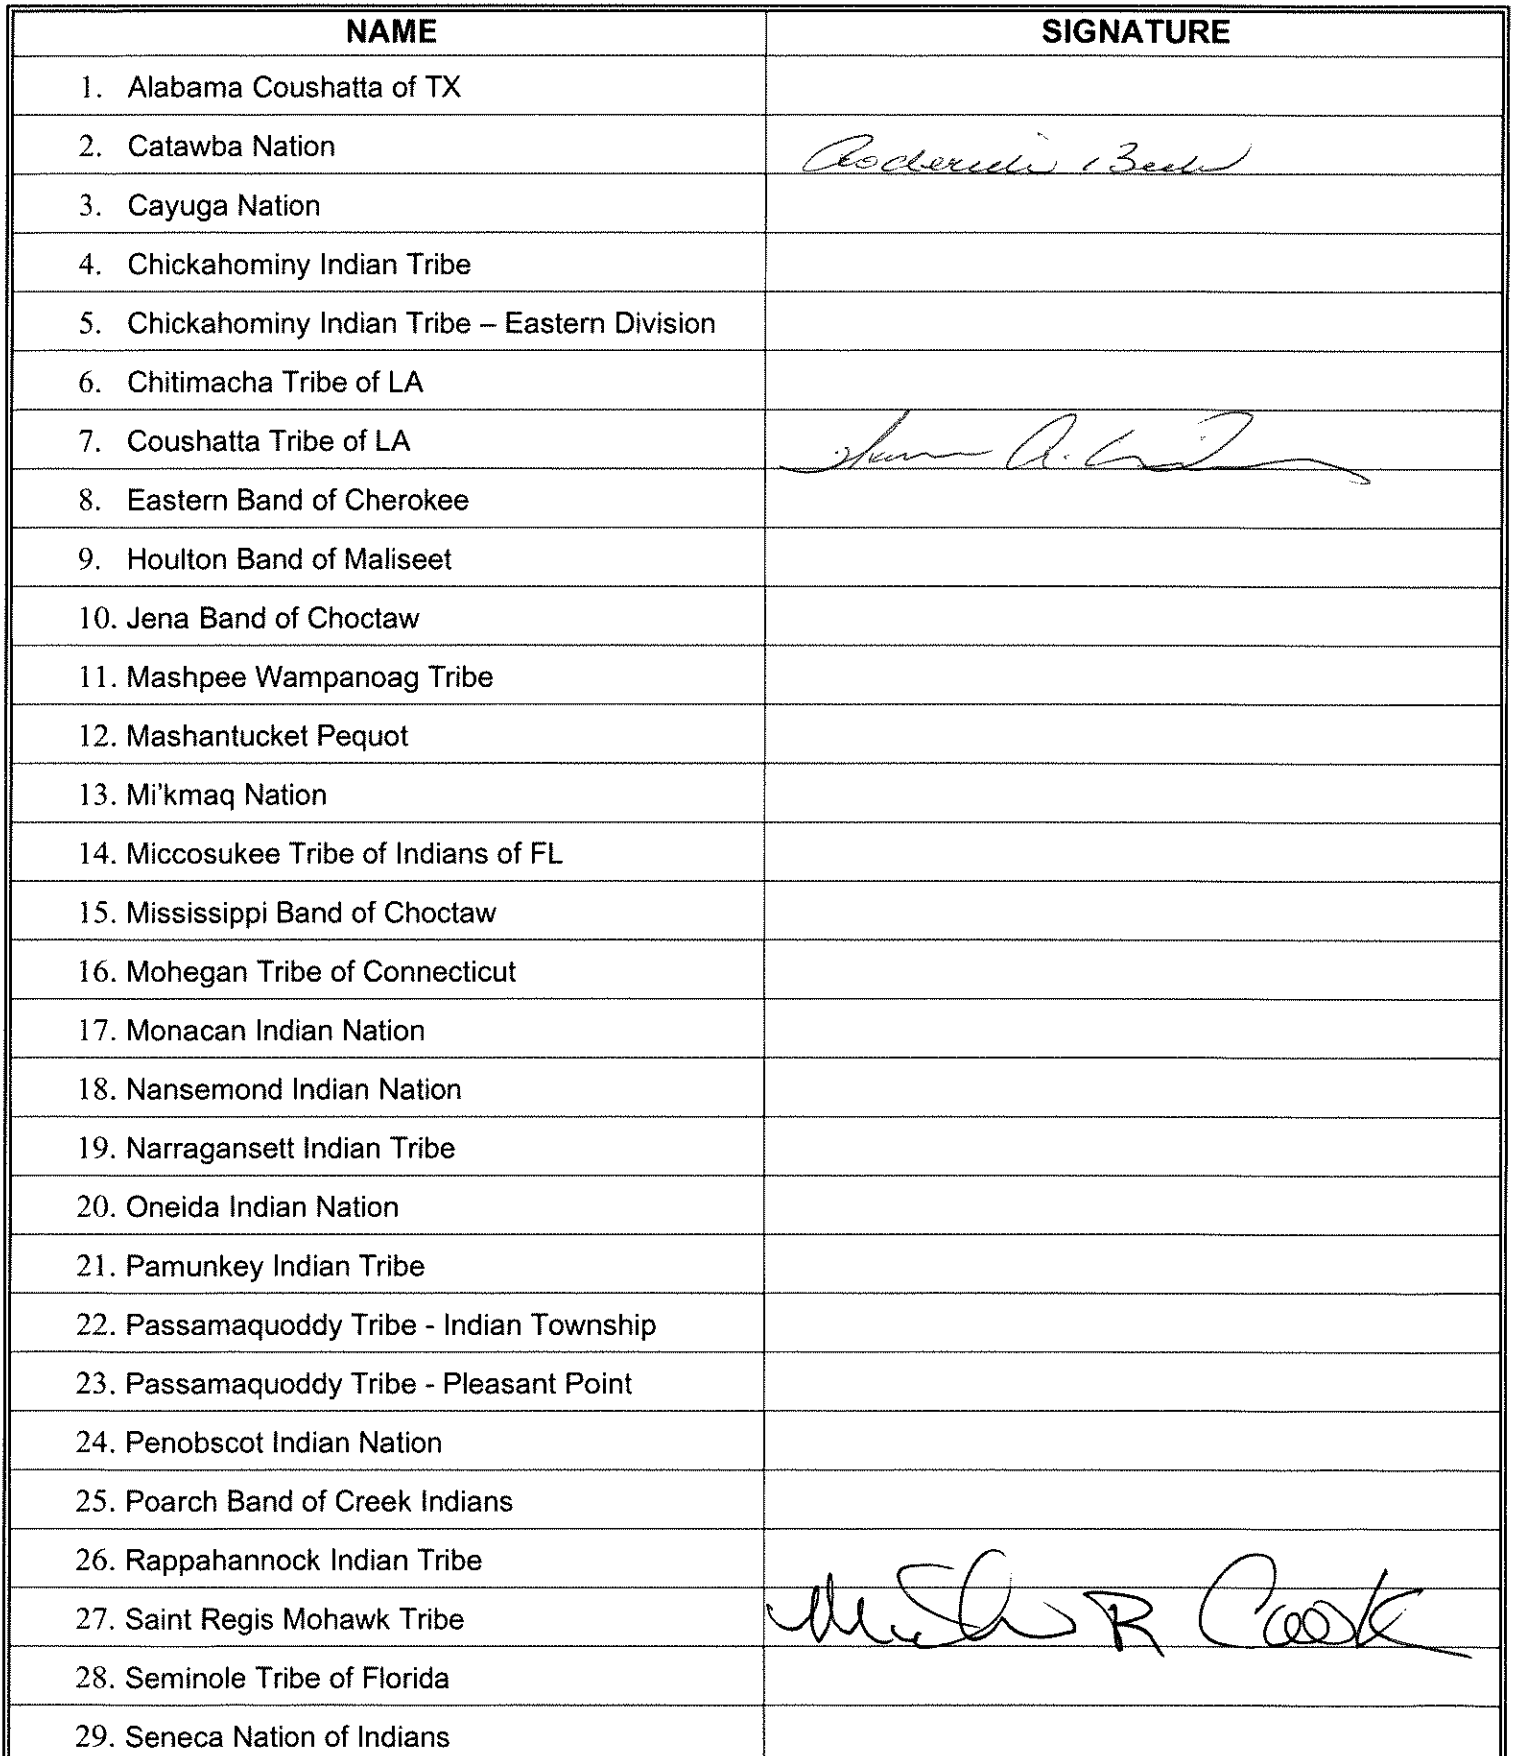 NAME SIGNATURE
1. Alabama Coushatta of TX
2. Catawba Nation
3. Cayuga Nation
4. Chickahominy Indian Tribe
5. Chickahominy Indian Tribe – Eastern Division
6. Chitimacha Tribe of LA
7. Coushatta Tribe of LA A.
8. Eastern Band of Cherokee
9. Houlton Band of Maliseet
10. Jena Band of Choctaw
11. Mashpee Wampanoag Tribe
12. Mashantucket Pequot
13. Mi'kmaq Nation
14. Miccosukee Tribe of Indians of FL
15. Mississippi Band of Choctaw
16. Mohegan Tribe of Connecticut
17. Monacan Indian Nation
18. Nansemond Indian Nation
19. Narragansett Indian Tribe
20. Oneida Indian Nation
21. Pamunkey Indian Tribe
22. Passamaquoddy Tribe - Indian Township
23. Passamaquoddy Tribe - Pleasant Point
24. Penobscot Indian Nation
25. Poarch Band of Creek Indians
26. Rappahannock Indian Tribe
27. Saint Regis Mohawk Tribe R Cook
28. Seminole Tribe of Florida
29. Seneca Nation of Indians